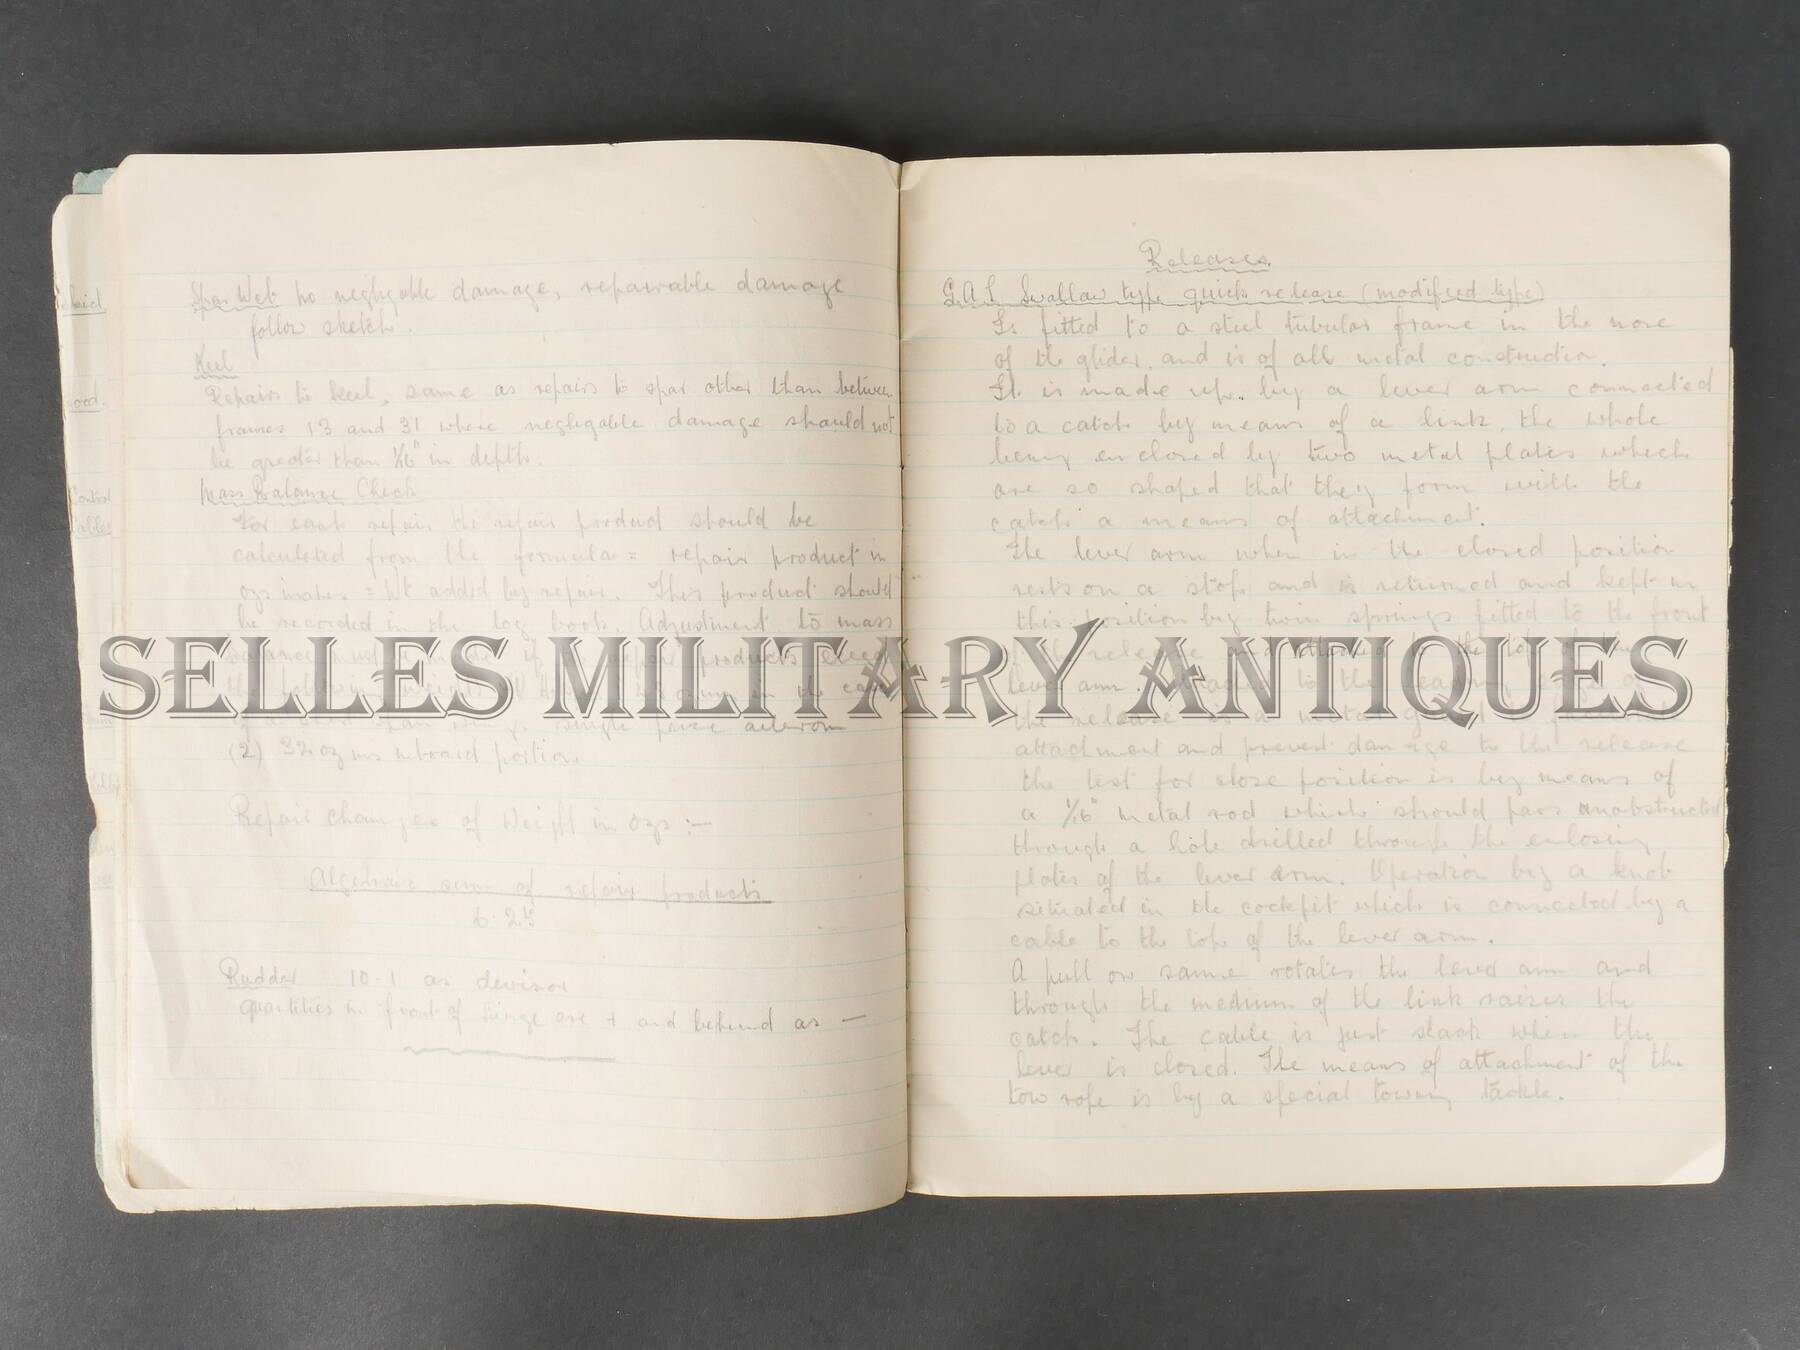 Spar Web no negligable damage, repairable damage
follow sketch.
Keel
Repairs to keel, same as repairs to spar other than between
frames 13 and 31 where negligable damage should not
be greater than 1/16" in depth.
Mass Balance Check
For each repair the repair product should be
calculated from the formula = repair product in
ozs inches = Wt added by repair. This product should
be recorded in the log book. Adjustment to mass
balance must if repair products exceed
the following in the case
of a single piece aileron
(2) 32 ozs ins inboard portion.
Repair changes of Weight in ozs :-
Algebraic sum of repair products
6.25
Rudder 10-1 as devisor
quantities in front of hinge are + and behind as -
Releases.
G.A.L Swallow type quick release (modified type)
Is fitted to a steel tubular frame in the nose
of the glider. and is of all metal construction.
It is made up. by a lever arm connected
to a catch by means of a link, the whole
being enclosed by two metal plates which
are so shaped that they form with the
catch a means of attachment.
The lever arm when in the closed position
rests on a stop and is returned and kept in
this position by twin springs fitted to the front
of the release and attached to the top of the
lever arm. to the leading edge of
the release is a metal guard
attachment and prevent damage to the release
the test for close position is by means of
a 1/16" metal rod which should pass unobstructed
through a hole drilled through the enclosing
plates of the lever arm. Operation by a knob
situated in the cockpit which is connected by a
cable to the top of the lever arm.
A pull on same rotates the lever arm and
through the medium of the link raises the
catch. The cable is just slack when the
lever is closed. The means of attachment of the
tow rope is by a special towing tackle.
SELLES MILITARY ANTIQUES